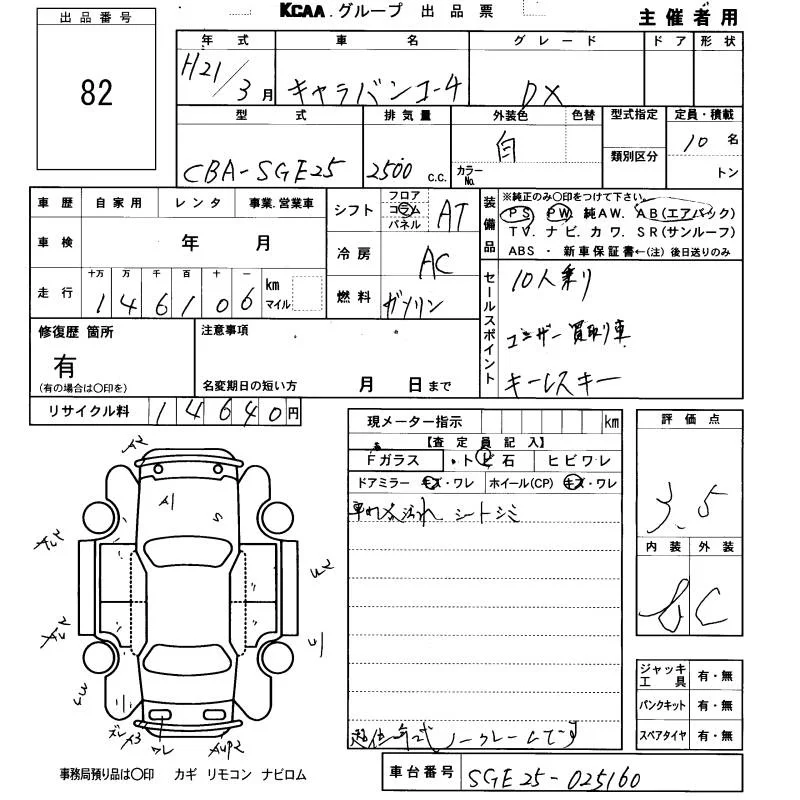 KCAA.グループ 出品票
主催者用
出品番号
82
年式 車名 グレード ドア 形状
H21/3月 キャラバンコーチ DX
型式 排気量 外装色 色替 型式指定 定員・積載
類別区分
CBA-SGE25 2500 c.c. カラーNo. 白 10名
トン
車歴 自家用 レンタ 事業.営業車
車検 年 月
走行 十万 万 千 百 十 一
146106 km マイル
シフト フロア コラム パネル AT
冷房 AC
燃料 ガソリン
装備品
※純正のみ○印をつけて下さい。
PS PW 純AW. AB(エアバック)
TV. ナビ. カワ. SR(サンルーフ)
ABS ・ 新車保証書←(注) 後日送りのみ
セールスポイント
10人乗り
ユーザー買取り車
キーレスキー
修復歴 箇所
有
(有の場合は○印を)
注意事項
名変期日の短い方 月 日まで
リサイクル料 14640円
現メーター指示 km
【査定員記入】
Fガラス ・トビ石 ヒビワレ
ドアミラー キズ・ワレ ホイール(CP) キズ・ワレ
シートシミ
ノークレームです
評価点
3.5
内装 外装
C
ジャッキ工具 有・無
パンクキット 有・無
スペアタイヤ 有・無
A2
A1
S
U2
ワレ
A3
事務局預り品は○印 カギ リモコン ナビロム
車台番号 SGE25-025160